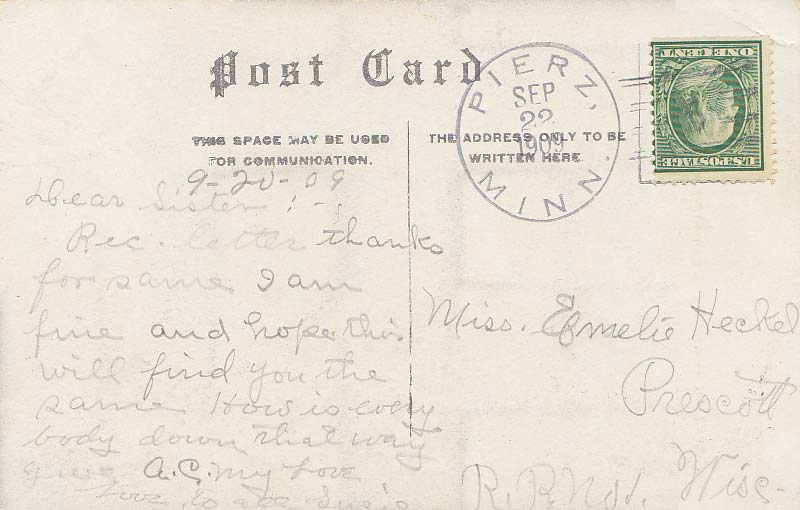 Post Card
THIS SPACE MAY BE USED
FOR COMMUNICATION.
THE ADDRESS ONLY TO BE
WRITTEN HERE.
PIERZ,
SEP
22
1909
MINN.
ONE CENT
U.S. POSTAGE
9-20-09
Dear Sister :-
Rec. letter thanks
for same I am
fine and hope this
will find you the
same How is every
body down that way
give A.C. my Love
Love to all Susie
Miss. Emelie Heckel
Prescott
R. R. No1. Wisc-